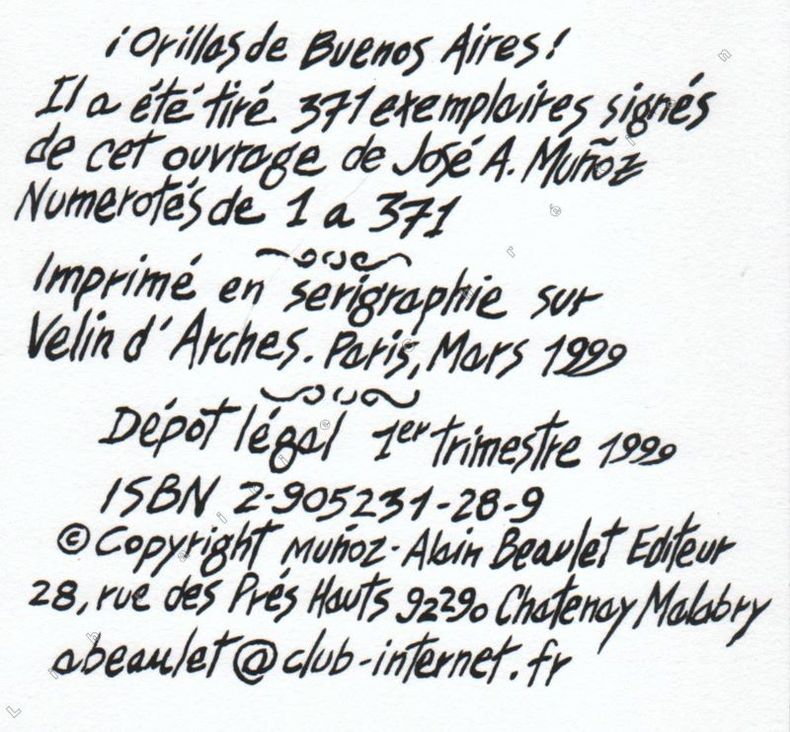 ¡Orillas de Buenos Aires!
Il a été tiré 371 exemplaires signés
de cet ouvrage de José A. Muñoz
Numerotés de 1 a 371
Imprimé en serigraphie sur
Velin d'Arches. Paris, Mars 1999
Dépot légal 1er trimestre 1999
ISBN 2-905231-28-9
© Copyright Muñoz - Alain Beaulet Editeur
28, rue des Prés Hauts 92290 Chatenay Malabry
abeaulet@club-internet.fr